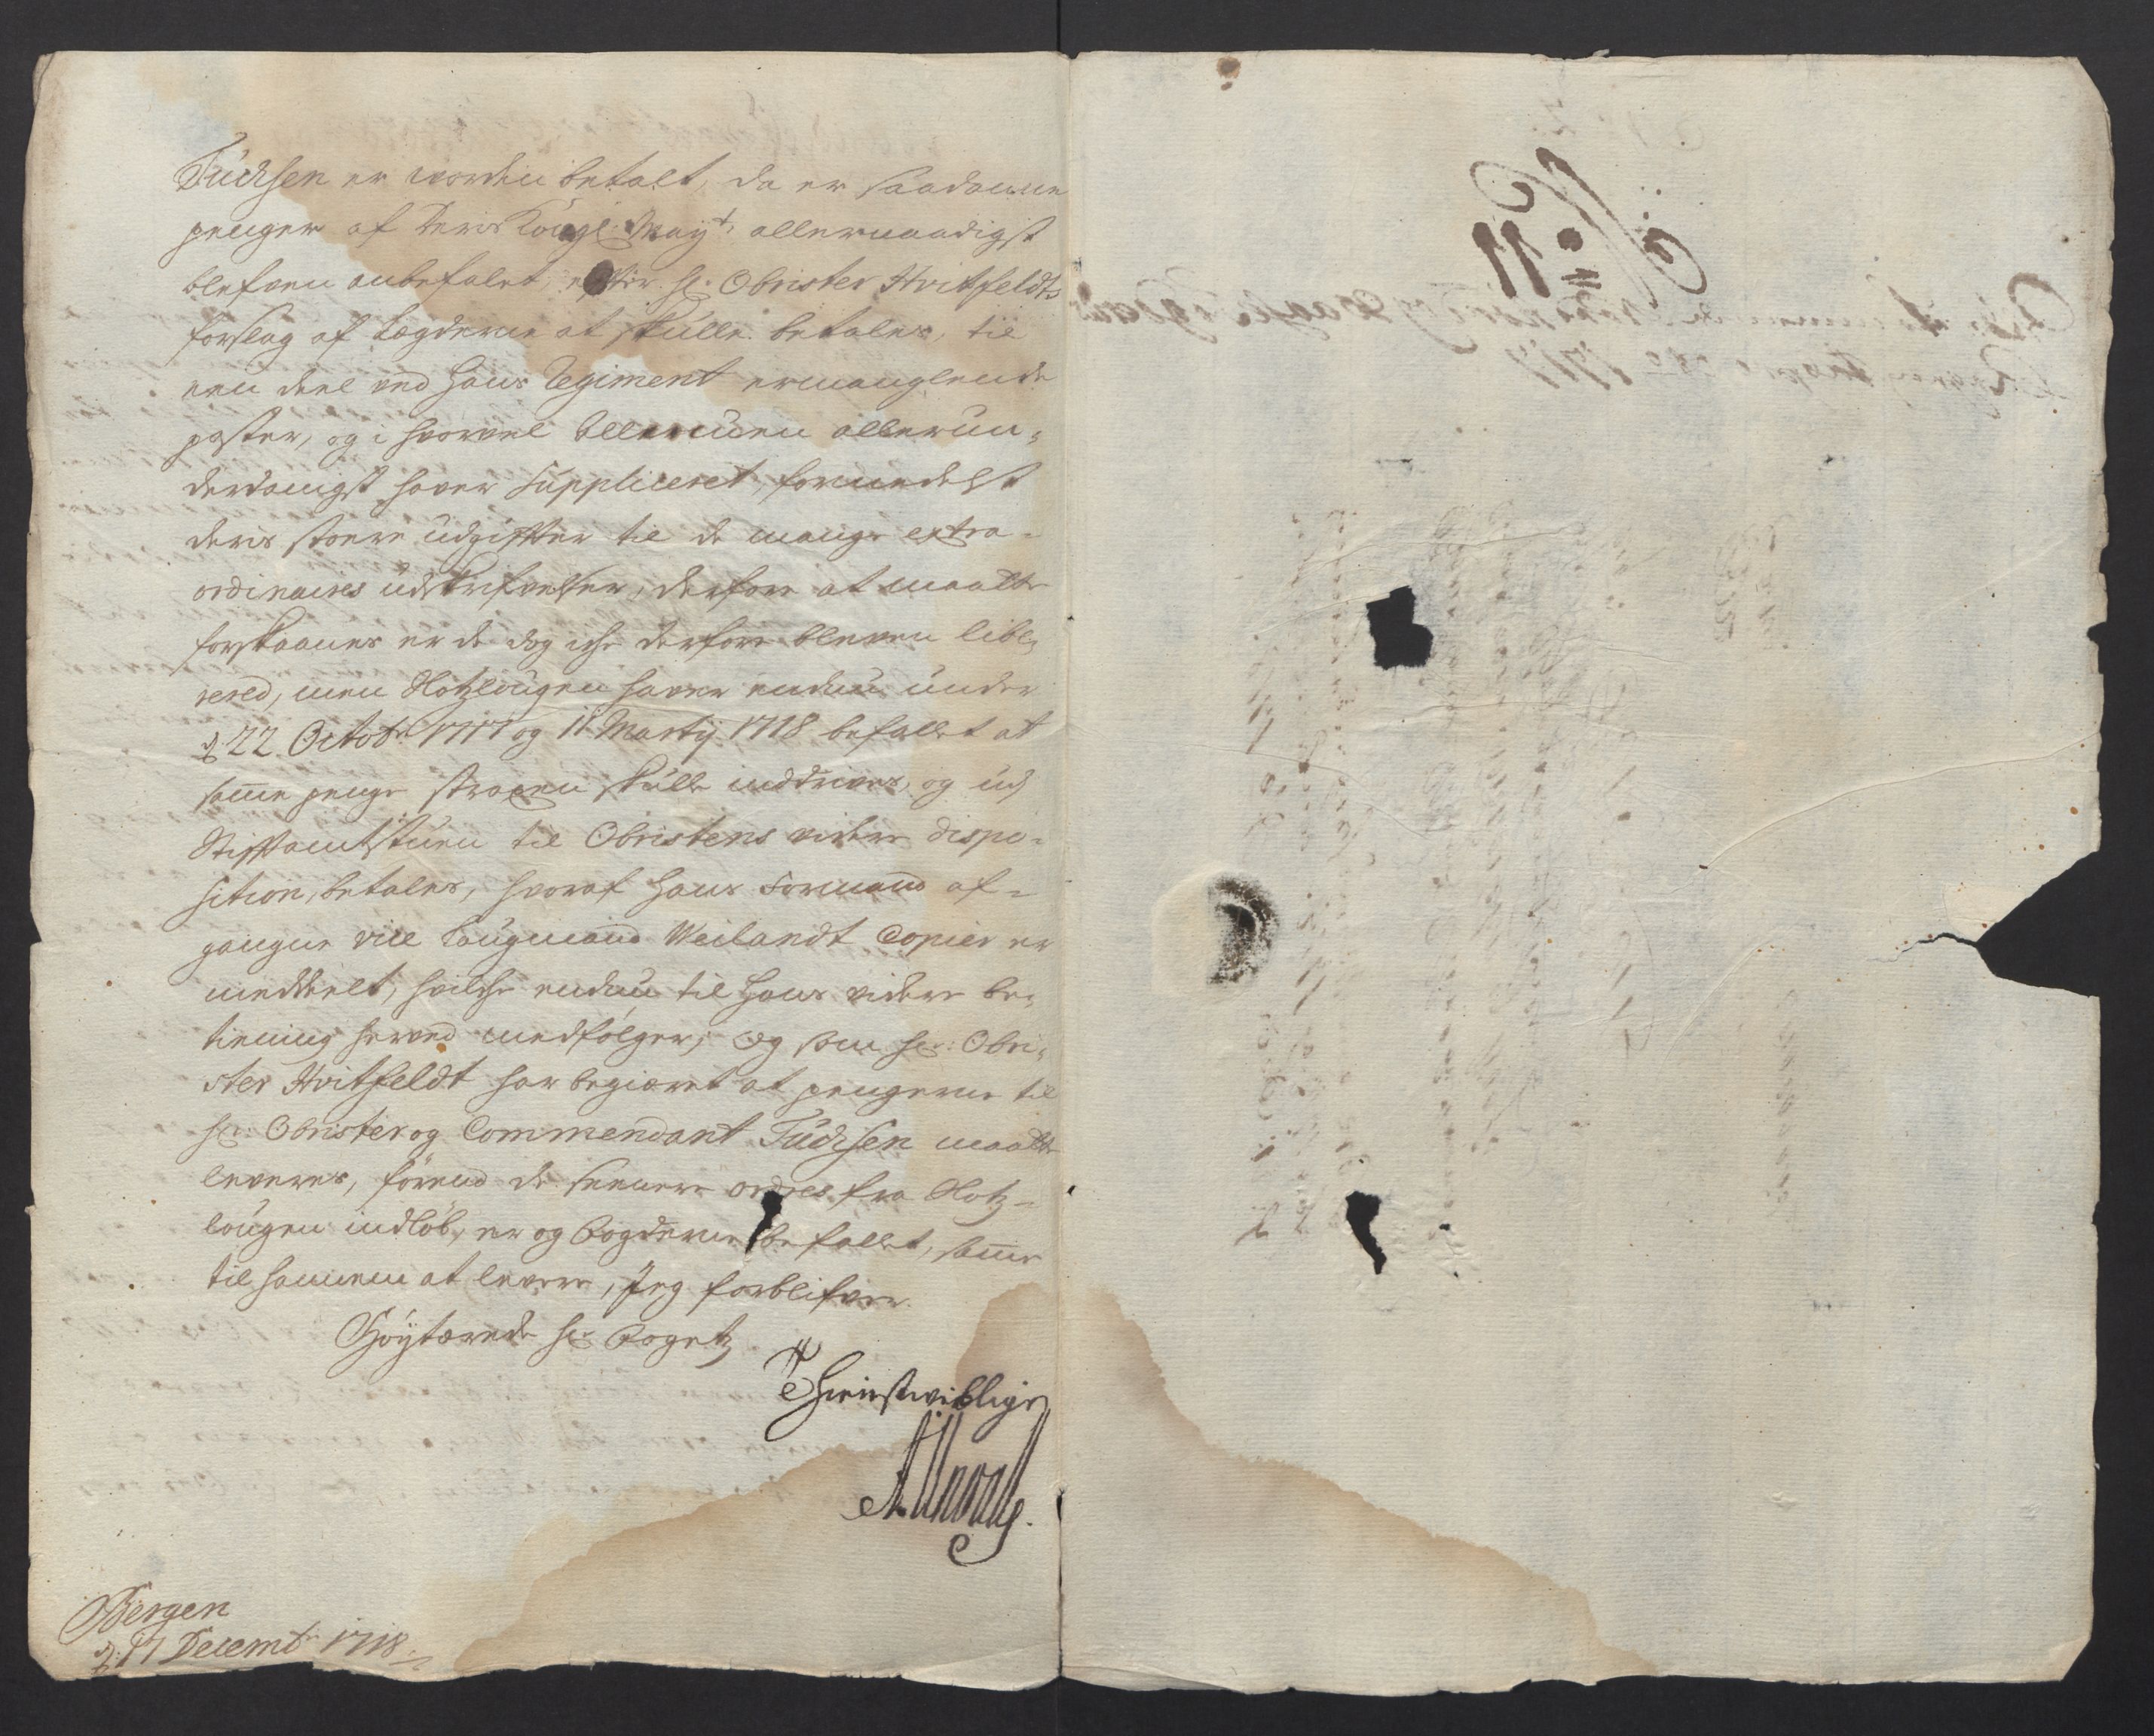 Füchsen er worden betalt, da er saadanne
penger af Deris Kongl: Mayt: allernaadigst
blefven anbefalet, efter Hr: Obrister Hvitfeldts
forslag af Lægderne at skulle betales, til
een deel ved hans Regiment ermanglende
poster, og i hvorvel Allmuen allerun-
derdanigst haver Suppliceret, formedelst
deris stoere udgiffter til de mange extra-
ordinaires udskrifvelser, derfore at maatte
forskaanes er de dog iche derfore bleven libe-
rered, men Slotzlougen haver endnu under
d: 22 Octobr 1717 og 11 Martij 1718 befallet at
samme penge straxen skulle inddrives, og udj
Stifftamtstuen til Obristens videre dispo-
sition, betales, hvoraf hans Formand af-
gangne vice Laugmand Weilandt Copier er
meddeelt, hvilche endnu til hans videre be-
tiening herved medfölger; og som Hr: Obri-
ster Hvitfeldt har begiæret at pengerne til
Hr: Obrister og Commendant Füchsen maatte
leveres, förend de senere ordres fra Slotz-
lougen indlöb, er og Fogderne befallet, samme
til hannem at levere, Jeg forblifver
Höytærede Hr Fogetz
Thienstwillige
Bergen
d: 17 Decembr 1718
No 11